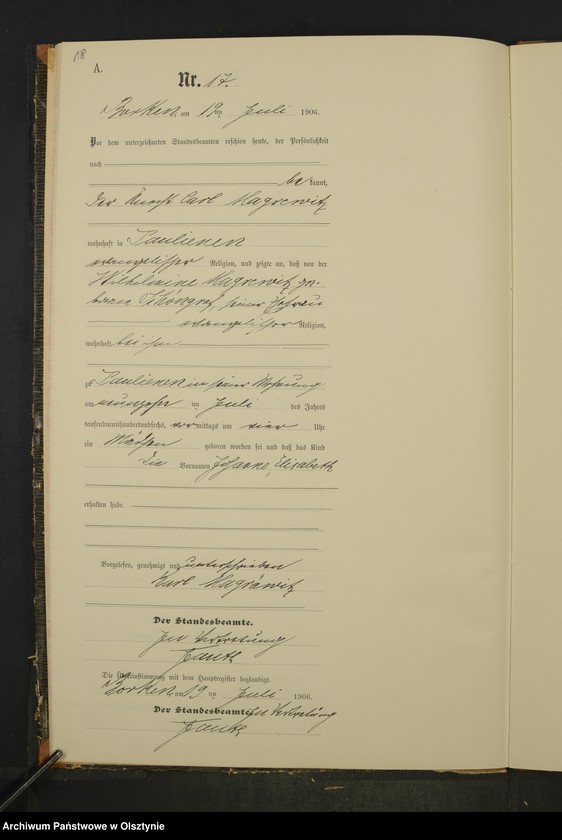 18
A.
Nr. 17.
Borken am 19ten Juli 1906.
Vor dem unterzeichneten Standesbeamten erschien heute, der Persönlichkeit
nach
bekannt,
der Knecht Carl Magrewitz
wohnhaft in Paulienen
evangelischer Religion, und zeigte an, daß von der
Wilhelmine Magrewitz ge-
borene Schöngraf, seiner Ehefrau
evangelischer Religion,
wohnhaft bei ihm
zu Paulienen in seiner Wohnung
am neunzehn ten Juli des Jahres
tausendneunhundertundsechs, vormittags um vier Uhr
ein Mädchen geboren worden sei und daß das Kind
die Vornamen Johanne, Elisabeth
erhalten habe.
Vorgelesen, genehmigt und unterschrieben
Karl Magräwitz
Der Standesbeamte.
In Vertretung
Die Übereinstimmung mit dem Hauptregister beglaubigt.
Borken am 19ten Juli 1906.
Der Standesbeamte. In Vertretung
Archiwum Państwowe w Olsztynie